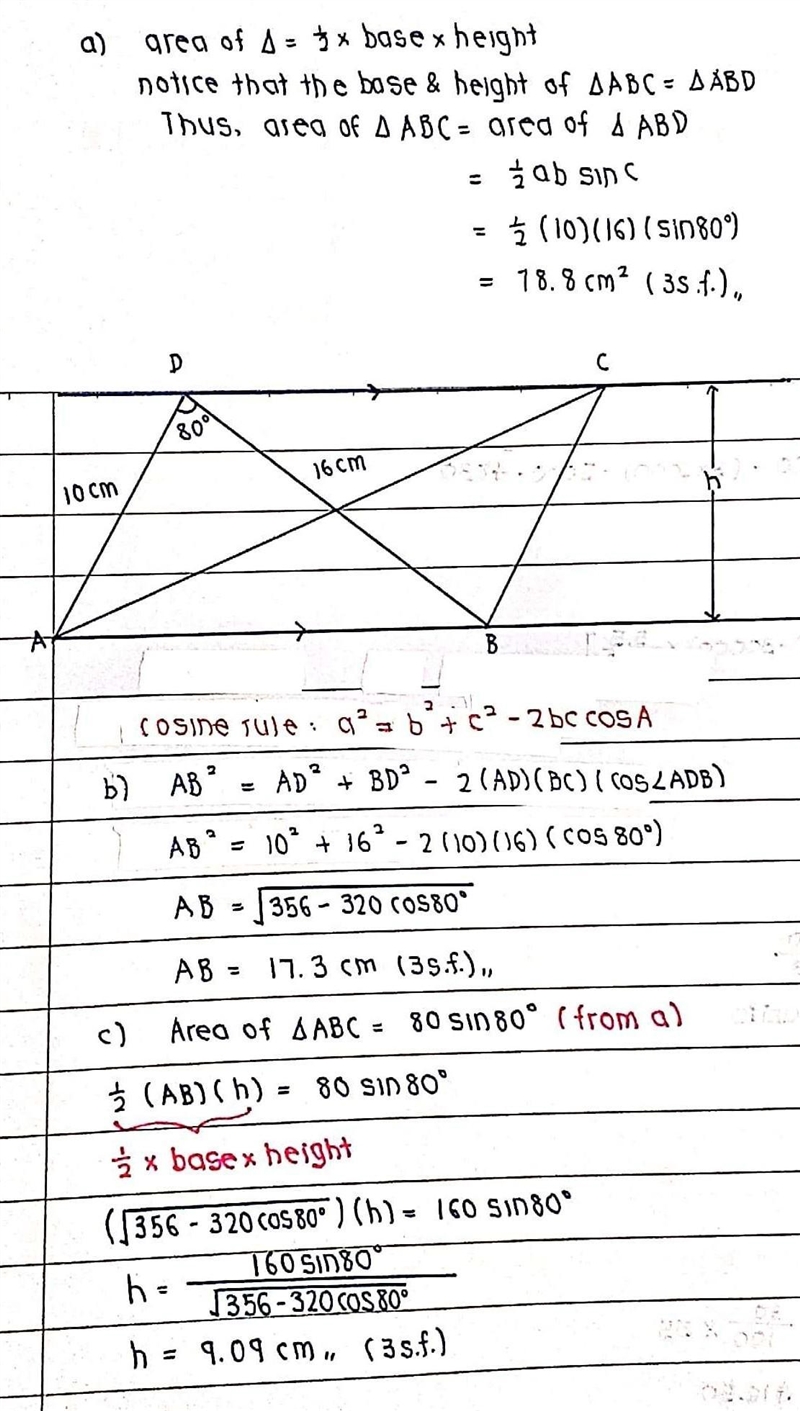 a) area of Δ = ½ × base × height
notice that the base & height of ΔABC = ΔABD
Thus, area of Δ ABC = area of Δ ABD
= ½ ab sin C
= ½ (10)(16)(sin80°)
= 78.8 cm² (3s.f.),,
D C
80°
16cm
10cm
h
A B
cosine rule: a² = b² + c² - 2bc cosA
b) AB² = AD² + BD² - 2(AD)(BC)(cos∠ADB)
AB² = 10² + 16² - 2(10)(16)(cos80°)
AB = √356 - 320 cos80°
AB = 17.3 cm (3s.f.),,
c) Area of ΔABC = 80 sin80° (from a)
½ (AB)(h) = 80 sin80°
½ × base × height
(√356 - 320cos80°)(h) = 160 sin80°
h = 160sin80° / √356-320cos80°
h = 9.09 cm,, (3s.f.)